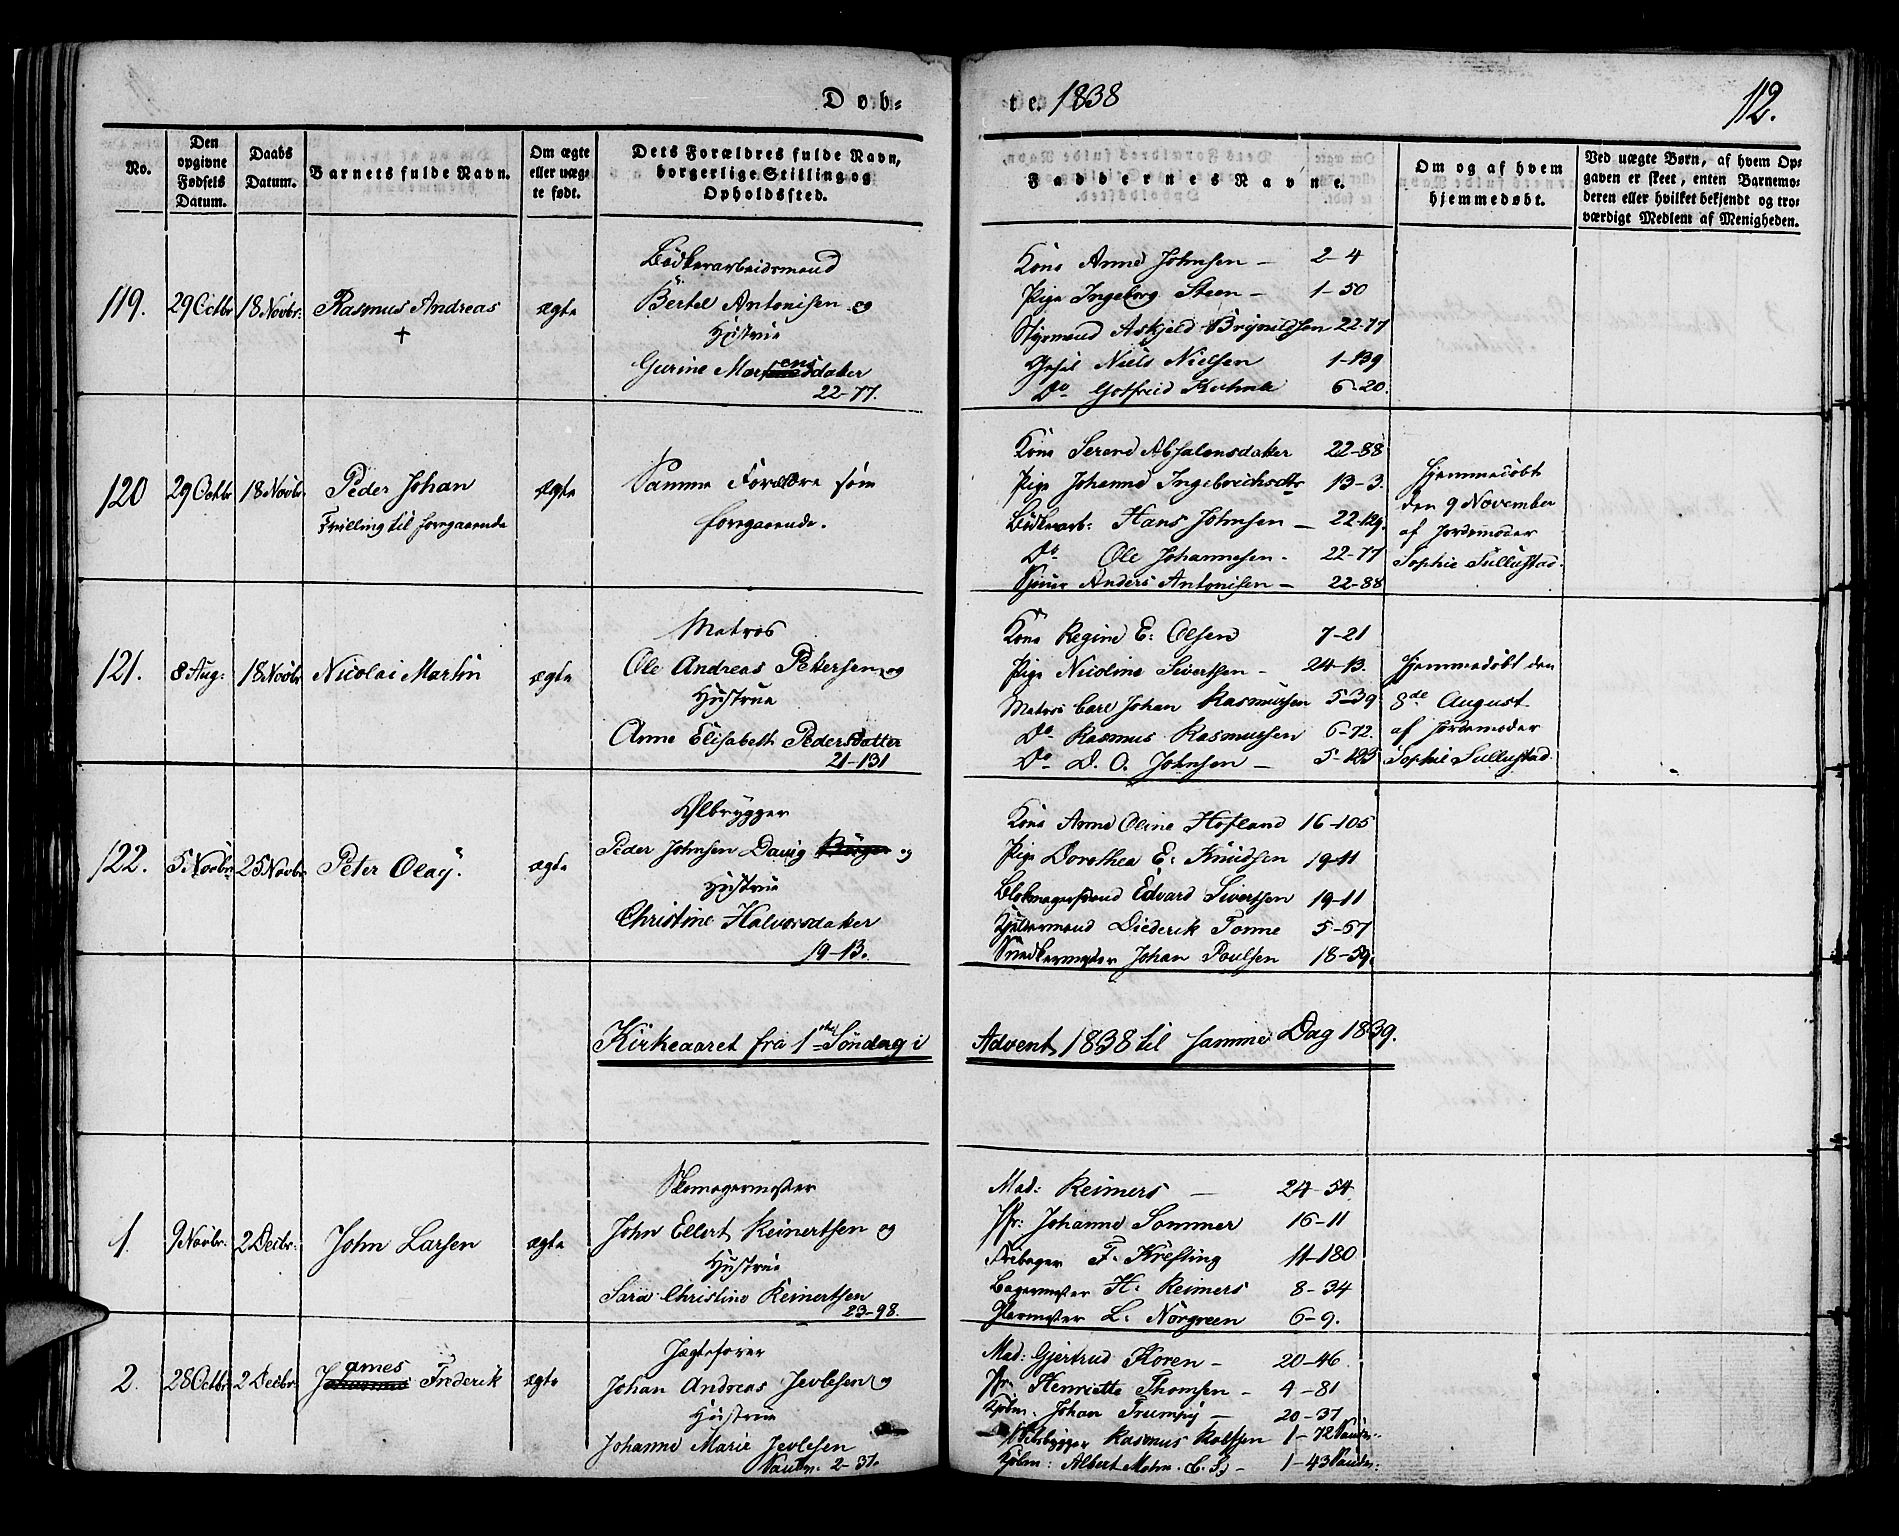 Døb=
te. 1838
112.
No.
Den opgivne Fødsels Datum.
Daabs Datum.
Barnets fulde Navn.
Om ægte eller uægte født.
Dets Forældres fulde Navn, borgerlige Stilling og Opholdssted.
Faddernes Navne.
Om og af hvem hjemmedøbt.
Ved uægte Børn, af hvem Opgaven er skeet, enten Barnemoderen eller hvilket bekjendt og troværdigt Medlem af Menigheden.
119. 29 Octbr 18 Novbr: Rasmus Andreas ægte
+
Bödkerarbeidsmand
Bertel Antonisen og
Hustrue
Gurine Mortensdatter
22-77.
Kone Anne Johnsen - 2-4
Pige Ingeborg Steen - 1-50
Styrmand Askjeld Brynildsen 22-77
Gesel Niels Nielsen 1-139
Do Gotfried Kuhnle 6-20.
120 29 Octbr 18 Novbr. Peder Johan ægte
Tvilling til foregaaende
Samme Forældre som
foregaaende.
Kone Serene Absalonsdatter 22-88
Pige Johanne Ingebrichsdtr 13-3.
Bödkerarb: Hans Johnsen - 22-129.
Do Ole Johannesen - 22-77
Anders Antonisen - 22-88
Hjemmedöbt
den 9 November
af Jordemoder
Sophie Tullustad.
121. 8 Aug: 18 Novbr Nicolai Martin ægte
Matros
Ole Andreas Petersen og
Hustrue
Anne Elisabeth Pedersdatter
21-131
Kone Regine E: Olsen 7-21
Pige Nicoline Sivertsen - 24-13.
Matros Carl Johan Rasmussen 5-39
Do Rasmus Rasmussen 6-72.
Do D. O. Johnsen - 5-185
Hjemmedöbt den
8de August
af Jordemoder
Sophie Tullustad.
122. 5 Novbr 25 Novbr Peter Olay. ægte
Ølbrygger
Peder Johnsen Davig og
Hustrue
Christine Halvorsdatter
19-13.
Kone Anne Oline Hofland 16-105
Pige Dorothea E: Knudsen 19-11
Blokmagersvend Edvard Sivertsen 19-11
Kjeldermand Diederik Tonne 5-57
Snedkermester Johan Poulsen 18-59.
Kirkeaaret fra 1ste Söndag i
Advent 1838 til samme Dag 1839.
1. 9 Novbr. 2 Decbr: John Larsen ægte
Skomagermester
John Ellert Reinertsen og
Hustrue
Sara Christine Reinertsen
23-98.
Mad: Reimers - 24-54.
Jfr: Johanne Sommer 16-11
Fribager F. Krefting 11-180
Bagermester H: Reimers 8-34
Glarmester L: Nörgreen 6-9.
2. 28 Octbr 2 Decbr. James Frederik ægte
Jægtefører
Johan Andreas Jevlesen og
Hustrue
Johanne Marie Jevlesen
Sandv. 2-37.
Mad: Gjertrud Koren - 20-46.
Jfr. Henriette Thomsen - 4-81
Kjöbm. Johan Trumpy - 20-37
Rasmus Rolfsen 1-72 Sandv.
Kjöbm: Albert Mohn - 1-43 Sandv.